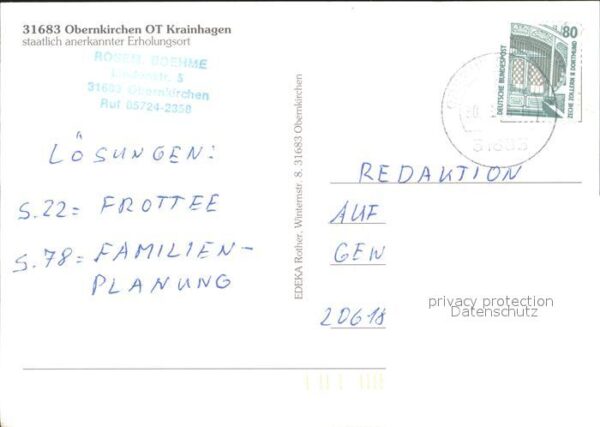 31683 Obernkirchen OT Krainhagen
staatlich anerkannter Erholungsort
ROSEM. BOEHME
Lindenstr. 5
31683 Obernkirchen
Ruf 05724-2359
LÖSUNGEN:
S.22 = FROTTEE
S.78 = FAMILIEN-
PLANUNG
EDEKA Rother, Winternstr. 8, 31683 Obernkirchen
80
DEUTSCHE BUNDESPOST
ZECHE ZOLLERN II DORTMUND
31683
REDAKTION
AUF
GEW
20618
privacy protection
Datenschutz